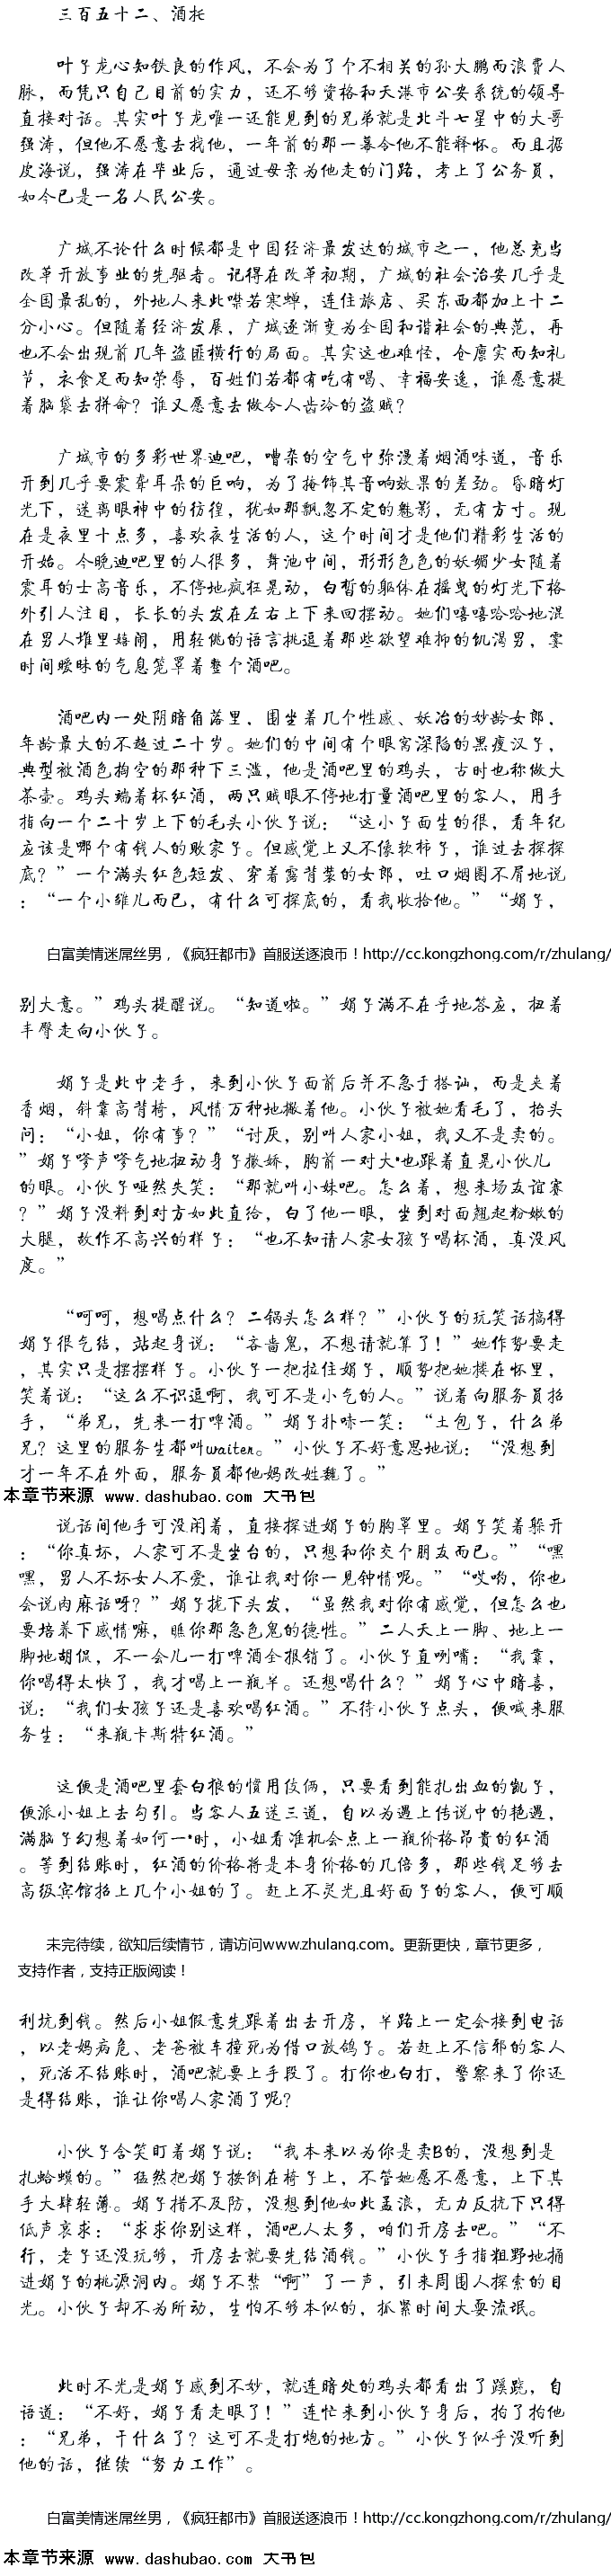 三百五十二、酒托
叶子龙心知铁良的作风，不会为了个不相关的孙大鹏而浪费人
脉，而凭只自己目前的实力，还不够资格和天港市公安系统的领导
直接对话。其实叶子龙唯一还能见到的兄弟就是北斗七星中的大哥
强涛，但他不愿意去找他，一年前的那一幕令他不能释怀。而且据
皮海说，强涛在毕业后，通过母亲为他走的门路，考上了公务员，
如今已是一名人民公安。
广城不论什么时候都是中国经济最发达的城市之一，他总充当
改革开放事业的先驱者。记得在改革初期，广城的社会治安几乎是
全国最乱的，外地人来此噤若寒蝉，连住旅店、买东西都加上十二
分小心。但随着经济发展，广城逐渐变为全国和谐社会的典范，再
也不会出现前几年盗匪横行的局面。其实这也难怪，仓廪实而知礼
节，衣食足而知荣辱，百姓们若都有吃有喝、幸福安逸，谁愿意提
着脑袋去拼命？谁又愿意去做令人齿冷的盗贼？
广城市的多彩世界迪吧，嘈杂的空气中弥漫着烟酒味道，音乐
开到几乎要震聋耳朵的巨响，为了掩饰其音响效果的差劲。昏暗灯
光下，迷离眼神中的彷徨，犹如那飘忽不定的魅影，无有方寸。现
在是夜里十点多，喜欢夜生活的人，这个时间才是他们精彩生活的
开始。今晚迪吧里的人很多，舞池中间，形形色色的妖媚少女随着
震耳的士高音乐，不停地疯狂晃动，白皙的躯体在摇曳的灯光下格
外引人注目，长长的头发在左右上下来回摆动。她们嘻嘻哈哈地混
在男人堆里嬉闹，用轻佻的语言挑逗着那些欲望难抑的饥渴男，霎
时间暧昧的气息笼罩着整个酒吧。
酒吧内一处阴暗角落里，围坐着几个性感、妖冶的妙龄女郎，
年龄最大的不超过二十岁。她们的中间有个眼窝深陷的黑瘦汉子，
典型被酒色掏空的那种下三滥，他是酒吧里的鸡头，古时也称做大
茶壶。鸡头端着杯红酒，两只贼眼不停地打量酒吧里的客人，用手
指向一个二十岁上下的毛头小伙子说：“这小子面生的很，看年纪
应该是哪个有钱人的败家子。但感觉上又不像软柿子，谁过去探探
底？”一个满头红色短发、穿着露背装的女郎，吐口烟圈不屑地说
：“一个小雏儿而已，有什么可探底的，看我收拾他。”“娟子，
白富美情迷屌丝男，《疯狂都市》首服送逐浪币！http://cc.kongzhong.com/r/zhulang/
别大意。”鸡头提醒说。“知道啦。”娟子满不在乎地答应，扭着
丰臀走向小伙子。
娟子是此中老手，来到小伙子面前后并不急于搭讪，而是夹着
香烟，斜靠高背椅，风情万种地撇着他。小伙子被她看毛了，抬头
问：“小姐，你有事？”“讨厌，别叫人家小姐，我又不是卖的。
”娟子嗲声嗲气地扭动身子撒娇，胸前一对大•也跟着直晃小伙儿
的眼。小伙子哑然失笑：“那就叫小妹吧。怎么着，想来场友谊赛
？”娟子没料到对方如此直给，白了他一眼，坐到对面翘起粉嫩的
大腿，故作不高兴的样子：“也不知请人家女孩子喝杯酒，真没风
度。”
“呵呵，想喝点什么？二锅头怎么样？”小伙子的玩笑话搞得
娟子很气结，站起身说：“吝啬鬼，不想请就算了！”她作势要走
，其实只是摆摆样子。小伙子一把拉住娟子，顺势把她搂在怀里，
笑着说：“这么不识逗啊，我可不是小气的人。”说着向服务员招
手，“弟兄，先来一打啤酒。”娟子扑哧一笑：“土包子，什么弟
兄？这里的服务生都叫waiter。”小伙子不好意思地说：“没想到
才一年不在外面，服务员都他妈改姓魏了。”
本章节来源 www.dashubao.com 大书包
说话间他手可没闲着，直接探进娟子的胸罩里。娟子笑着躲开
：“你真坏，人家可不是坐台的，只想和你交个朋友而已。”“嘿
嘿，男人不坏女人不爱，谁让我对你一见钟情呢。”“哎哟，你也
会说肉麻话呀？”娟子拢下头发，“虽然我对你有感觉，但怎么也
要培养下感情嘛，瞧你那急色鬼的德性。”二人天上一脚、地上一
脚地胡侃，不一会儿一打啤酒全报销了。小伙子直咧嘴：“我靠，
你喝得太快了，我才喝上一瓶半。还想喝什么？”娟子心中暗喜，
说：“我们女孩子还是喜欢喝红酒。”不待小伙子点头，便喊来服
务生：“来瓶卡斯特红酒。”
这便是酒吧里套白狼的惯用伎俩，只要看到能扎出血的凯子，
便派小姐上去勾引。当客人五迷三道，自以为遇上传说中的艳遇，
满脑子幻想着如何一•时，小姐看准机会点上一瓶价格昂贵的红酒
。等到结账时，红酒的价格将是本身价格的几倍多，那些钱足够去
高级宾馆招上几个小姐的了。赶上不灵光且好面子的客人，便可顺
未完待续，欲知后续情节，请访问www.zhulang.com。更新更快，章节更多，
支持作者，支持正版阅读！
利坑到钱。然后小姐假意先跟着出去开房，半路上一定会接到电话
，以老妈病危、老爸被车撞死为借口放鸽子。若赶上不信邪的客人
，死活不结账时，酒吧就要上手段了。打你也白打，警察来了你还
是得结账，谁让你喝人家酒了呢？
小伙子含笑盯着娟子说：“我本来以为你是卖B的，没想到是
扎蛤蟆的。”猛然把娟子按倒在椅子上，不管她愿不愿意，上下其
手大肆轻薄。娟子措不及防，没想到他如此孟浪，无力反抗下只得
低声哀求：“求求你别这样，酒吧人太多，咱们开房去吧。”“不
行，老子还没玩够，开房去就要先结酒钱。”小伙子手指粗野地捅
进娟子的桃源洞内。娟子不禁“啊”了一声，引来周围人探索的目
光。小伙子却不为所动，生怕不够本似的，抓紧时间大耍流氓。
此时不光是娟子感到不妙，就连暗处的鸡头都看出了蹊跷，自
语道：“不好，娟子看走眼了！”连忙来到小伙子身后，拍了拍他
：“兄弟，干什么了？这可不是打炮的地方。”小伙子似乎没听到
他的话，继续“努力工作”。
白富美情迷屌丝男，《疯狂都市》首服送逐浪币！http://cc.kongzhong.com/r/zhulang/
本章节来源 www.dashubao.com 大书包